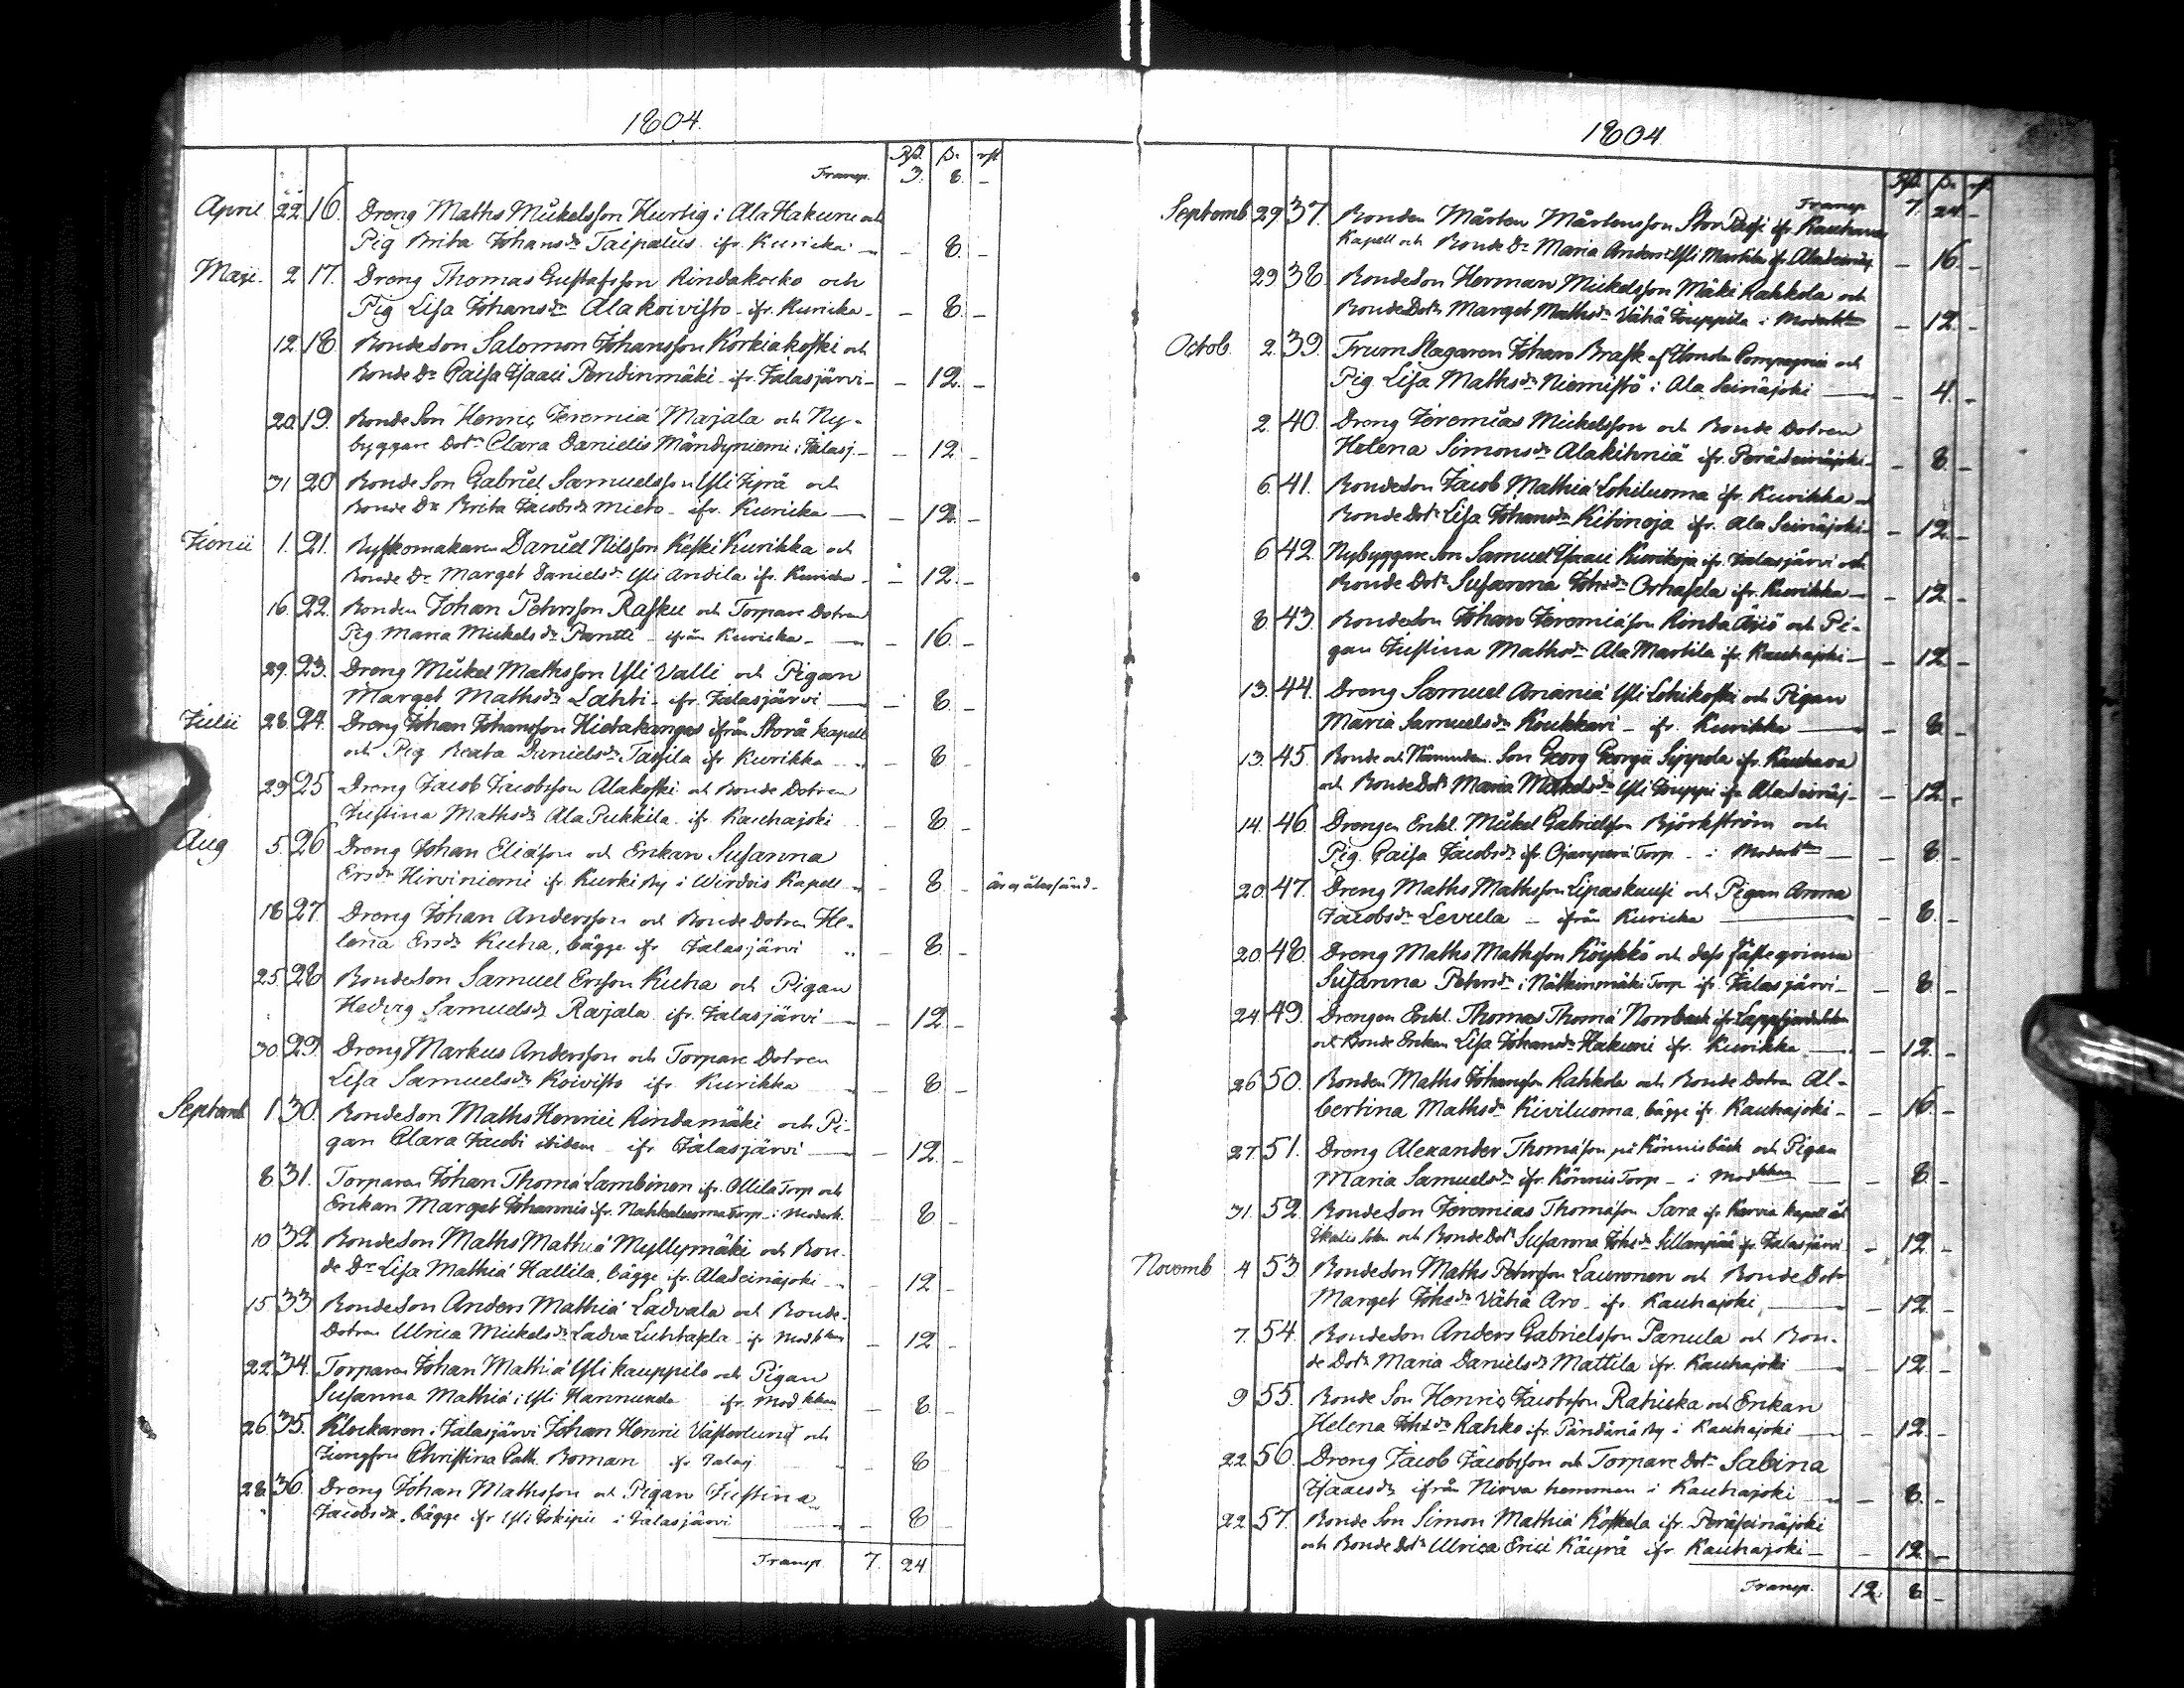 1804.
Rsd. ß. rst
Transp. 3. 8. -
April 22. 16. Dreng Maths Mickelsson Hurtig i Ala Hakuni och
Pig Brita Johansdr Taipalus ifr. Kuricka - 8. -
Maji 2 17. Dreng Thomas Gustafsson Rindakoko och
Pig Lisa Johansdr Alakoivisto ifr. Kuricka - - 8. -
12. 18 BondeSon Salomon Johansson Korkiakoski och
Bonde Dr Caisa Isaaci Pendinmäki ifr. Jalasjärvi - - 12. -
20. 19. Bonde Son Henric Jeremiæ Marjala och Ny-
byggare Dotr Clara Danielis Mändyniemi i Jalasj. - - 12 -
31 20 Bonde Son Gabriel Samuelsson Yli Jyrä och
Bonde Dr Brita Jacobsdr Mieto - ifr. Kuricka - - 12. -
Junii 1. 21. Byskomakaren Daniel Nilsson Keski Kurikka och
Bonde Dr Marget Danielsdr Yli Andila ifr. Kuricka - - 12. -
16. 22. Bonden Johan Pehrsson Rasku och Torpare Dotren
Pig Maria Mickelsdr Pantti - ifrån Kuricka - - 16. -
29. 23. Dreng Mickel Mathsson Yli Valli och Pigan
Marget Mathsdr Lahti - ifr. Jalasjärvi - - 8. -
Julii 28. 24. Dreng Johan Johansson Hietakangas ifrån Storå kapell
och Pig Beata Danielsdr Tassila ifr Kurikka - - 8 -
29 25 Dreng Jacob Jacobsson Alakoski och Bonde Dotren
Justina Mathsdr Ala Pukkila ifr. Kauhajoki - 8 -
Aug 5. 26 Dreng Johan Eliæson och Enkan Susanna
Ersdr Hirviniemi ifr Kurki By i Wirdois Kapell - - 8 -
18 27. Dreng Johan Andersson och Bonde Dotren He-
lena Ersdr Kuha, bägge ifr Jalasjärvi - 8. -
25. 28 BondeSon Samuel Ersson Kuha och Pigan
Hedvig Samuelsdr Rajala ifr. Jalasjärvi - - 12. -
30. 29. Dreng Markus Andersson och Torpare Dotren
Lisa Samuelsdr Koivisto ifr. Kurikka - - 8 -
Septemb 1 30. BondeSon Maths Henrici Rindamäki och Pi-
gan Clara Jacobi ibidem - ifr Jalasjärvi - - 12. -
8 31. Torparen Johan Thomæ Lambinen ifr. Ollila Torp och
Enkan Marget Johannis ifr. Nahkaluoma Torp i Moderk. 8 -
10 32 BondeSon Maths Mathiæ Myllymäki och Bon-
de Dr Lisa Mathiæ Hallila, bägge ifr. AlaSeinäjoki - - 12 -
15. 33 BondeSon Anders Mathiæ Ladvala och Bonde-
Dotren Ulrica Mickelsdr Ladva Luhtasela ifr - 12 -
22. 34. Torparen Johan Mathiæ Yli Kauppila och Pigan
Susanna Mathiæ i Yli Hannuxela ifr. - 8 -
26. 35. Klockaren i Jalasjärvi Johan Henric Västerlund och
Jungfru Christina Cath. Roman ifr Jalasj. - 8
28. 36. Dreng Johan Mathsson och Pigan Justina
Jacobsdr, bägge ifr Yli Jokipii i Jalasjärvi - - 8 -
Transp. 7. 24
1804
Rsd. ß. rst.
Transp 7. 24 -
Septemb 29 37. Bonden Mårten Mårtensson Stor Passi ifr. Kauhava
Kapell och Bonde Dr Maria Andersdr Yli Martila ifr. AlaSeinäj. - 16. -
29 38. BondeSon Herman Mickelsson Mäki Rahkola och
BondeDotr Marget Mathsdr Vähä Jouppila i - 12. -
Octob. 2. 39. Trumslagaren Johan Brask af Ilmola Compagnie och
Pig Lisa Mathsdr Niemistö i Ala Seinäjoki - - 4. -
2. 40. Dreng Jeremias Mickelsson och Bonde Dotren
Helena Simonsdr Alakihniä ifr. PeräSeinäjoki - - 8. -
6. 41. BondeSon Jacob Mathiæ Lohiluoma ifr. Kurikka -
Bonde Dotr Lisa Johansdr Kibinoja ifr. Ala Seinäjoki - - 12 -
6 42. Nybyggare Son Samuel Isaaci Kurikoja ifr. Jalasjärvi och
Bonde Dotr Susanna Johsdr Orhasela ifr. Kurikka - - 12. -
8. 43. BondeSon Johan Jeremiæson Rinda Äijö och Pi-
gan Justina Mathsdr Ala Martila ifr. Kauhajoki - - 12. -
13. 44. Dreng Samuel Ananiæ Yli Lohikoski och Pigan
Maria Samuelsdr Koukkari - ifr. Kurikka - - 8. -
13. 45. Bonde och Nämndem. Son Georg Georgii Sippola ifr. Kauhava
och BondeDotr Maria Mickelsdr Yli Jouppi ifr AlaSeinäj. - - 12. -
14. 46. Drengen Enkl. Mickel Gabrielsson Björkström och
Pig. Caisa Jacobsdr ifr. Ojanperä Torp - i - 8. -
20. 47. Dreng Maths Mathsson Lipaskuusi och Pigan Anna
Jacobsdr Levula - ifrån Kuricka - - 8. -
20. 48. Dreng Maths Mathsson Köykkö och dess fästeqvinna
Susanna Pehrsdr i Nätkinmäki Torp ifr. Jalasjärvi - - 8. -
24. 49. Drengen Enkl. Thomas Thomæ Norrback ifr.
och Bonde Enkan Lisa Johansdr Hakuni ifr. Kurikka - - 12. -
26 50. Bonden Maths Johansson Rahkola och Bonde Dotren Al-
bertina Mathsdr Kiviluoma, bägge ifr. Kauhajoki - - 16. -
27. 51. Dreng Alexander Thomæson på Könnisbäck och Pigan
Maria Samuelsdr ifr. Könnis Torp - i - 8. -
31. 52. BondeSon Jeremias Thomæson Sara ifr Karvia Kapell
Ikalis och Bonde Dotr Susanna Johsdr Sillanpää ifr Jalasjärvi - 12 -
Novemb 4 53 BondeSon Maths Pehrsson Lauronen och BondeDotr
Marget Johsdr Vähä Aro - ifr. Kauhajoki, - - 12. -
7. 54. BondeSon Anders Gabrielsson Panula och Bon-
de Dotr Maria Danielsdr Mattila ifr. Kauhajoki - - 12. -
9 55. Bonde Son Henric Jacobsson Rahicka och Enkan
Helena Johsdr Rahko ifr. Pändänä By i Kauhajoki - - 12. -
22 56. Dreng Jacob Jacobsson och Torpare Dotr Sabina
Isaacsdr ifrån Nirva hemman i Kauhajoki - - 8. -
22 57. Bonde Son Simon Mathiæ Koskela ifr. Peräseinäjoki
och Bonde Dotr Ulrica Erici Käyrä ifr. Kauhajoki - - 12. -
Transp. 12. 8. -